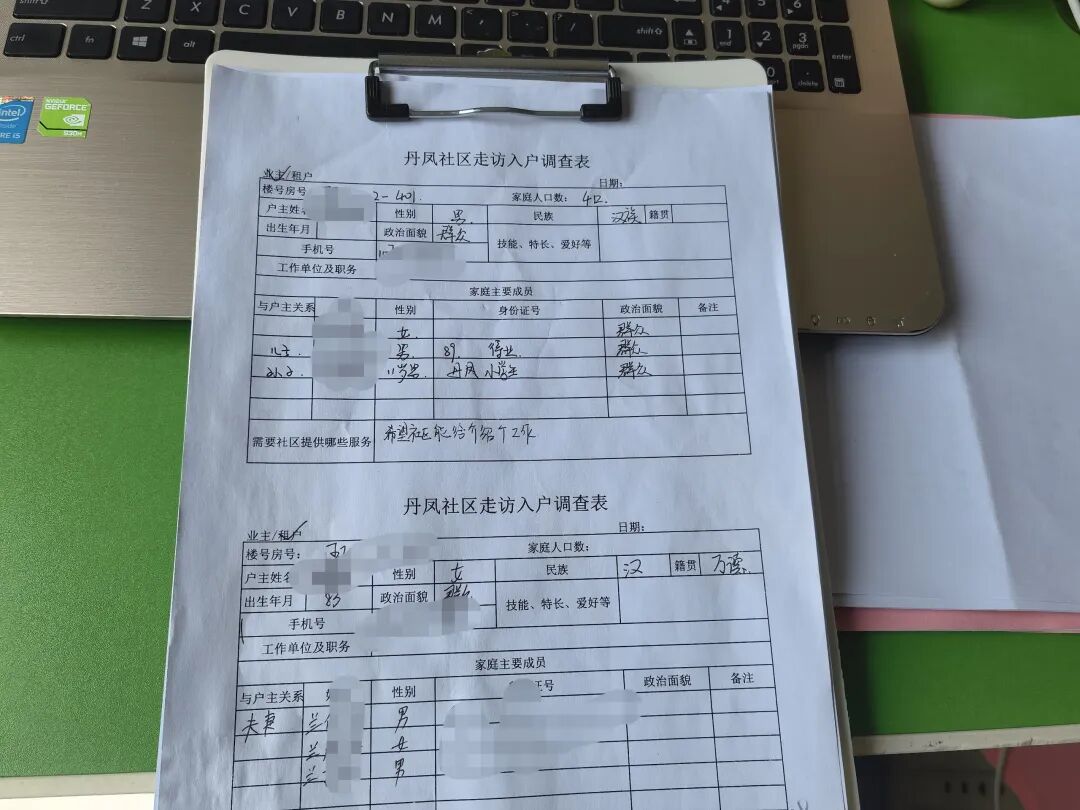 shift Z X C V B N M < > ? / shift 1 end 2 3 pgdn
ctrl fn alt 0 delete enter
intel CORE i5
NVIDIA GEFORCE 930M
丹凤社区走访入户调查表
业主/租户 日期:
楼号房号 2-401. 家庭人口数: 4口.
户主姓名 性别 男. 民族 汉族 籍贯
出生年月 政治面貌 群众 技能、特长、爱好等
手机号
工作单位及职务
家庭主要成员
与户主关系 性别 身份证号 政治面貌 备注
女. 群众
儿子. 男. 89. 待业. 群众
孙子. 11岁男. 丹凤小学生 群众
需要社区提供哪些服务 希望社区能给介绍个工作
丹凤社区走访入户调查表
业主/租户 日期:
楼号房号: 家庭人口数:
户主姓名 性别 女 民族 汉 籍贯
出生年月 83 政治面貌 群众 技能、特长、爱好等
手机号
工作单位及职务
家庭主要成员
与户主关系 性别 证号 政治面貌 备注
夫妻 兰 男
兰 女
兰 男